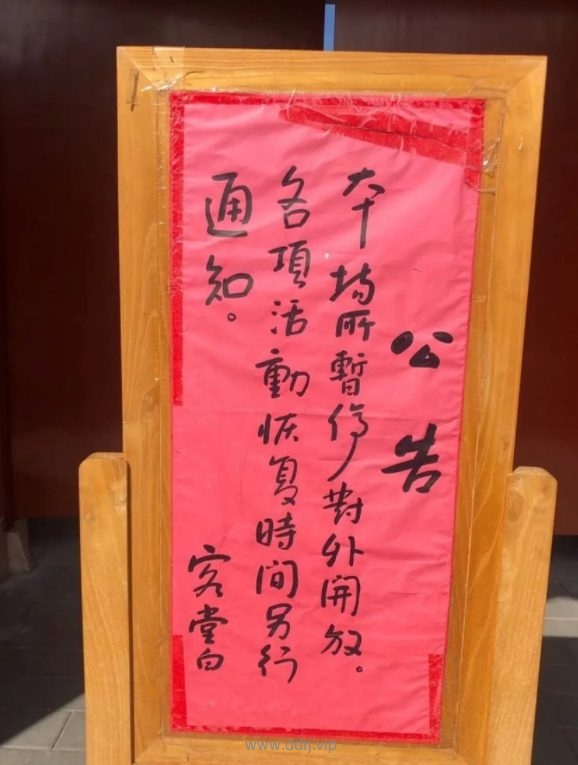 公告
本場所暫停對外開放。
各項活動恢复時間另行
通知。
客堂白
www.ddfj.vip